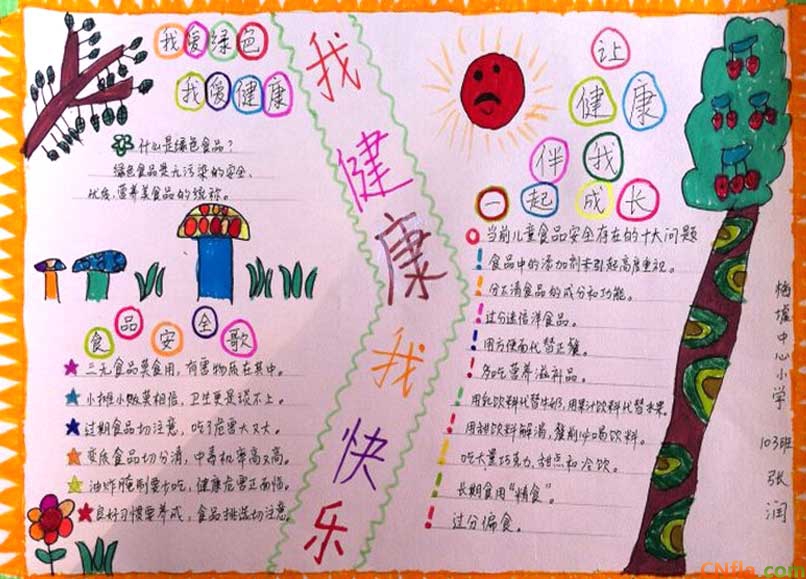 我爱绿色
我爱健康
什么是绿色食品？
绿色食品是无污染的安全、
优质、营养类食品的统称。
食品安全歌
三无食品莫食用，有害物质在其中。
小摊小贩莫相信，卫生更是谈不上。
过期食品切注意，吃了危害大又大。
变质食品切分清，中毒机率高又高。
油炸腌制要少吃，健康危害正面临。
良好习惯要养成，食品挑选切注意。
我健康我快乐
让
健康
伴我
一起成长
当前儿童食品安全存在的十大问题
食品中的添加剂未引起高度重视。
分不清食品的成分和功能。
过分迷信洋食品。
用方便面代替正餐。
多吃营养滋补品。
用乳饮料代替牛奶，用果汁饮料代替水果。
用甜饮料解渴，餐前必喝饮料。
吃大量巧克力、甜点和冷饮。
长期食用“精食”。
过分偏食。
中心小学
103班
张润
CNfla.com